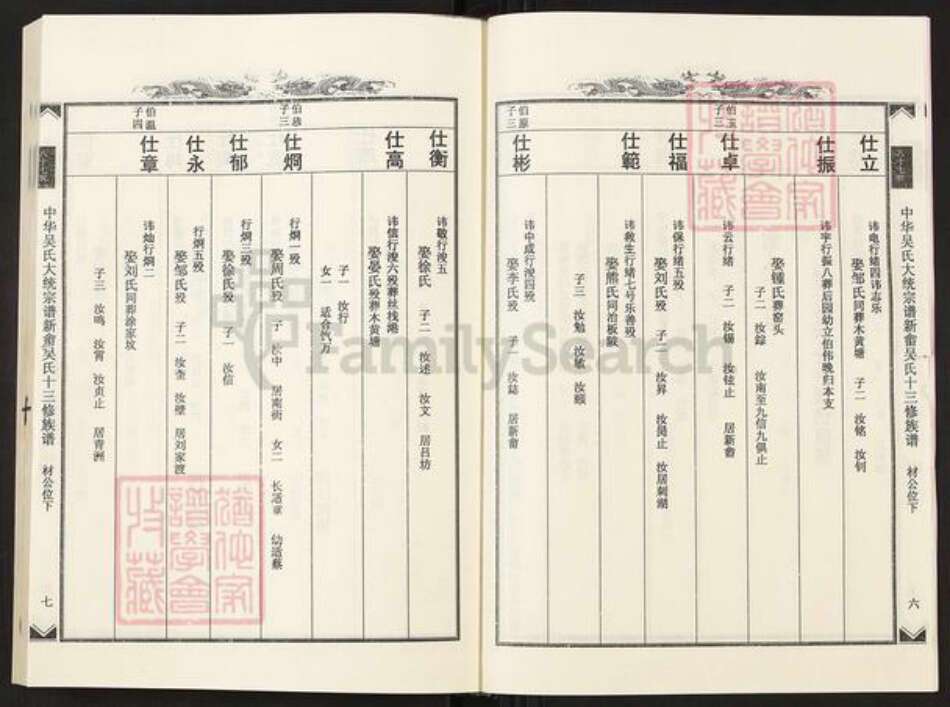 中华吴氏大统宗谱新畲吴氏十三修族谱 材公位下
六
仕立
讳电行绪四讳志乐
娶邹氏同葬木黄塘 子二 汝铭 汝钊
仕振
讳宇行振八葬后园幼立伯伟晚归本支
娶锺氏葬窑头
子二 汝踪 汝南至九信九俱止
伯玉
子三
仕卓
讳云行绪 子二 汝锡 汝铉止 居新畲
仕福
讳保行绪五殁
娶刘氏殁 子 汝昇 汝昺止 汝居刺湖
仕範
讳救生行绪七号乐善殁
娶熊氏同冶板陂
子三 汝勉 汝敏 汝颐
伯原
子三
仕彬
讳中成行溲四殁
娶李氏殁 子一 汝誌 居新畲
仕衡
讳敬行溲五
娶徐氏 子二 汝述 汝文 居吕坊
仕高
讳信行溲六殁葬丝栈港
娶晏氏殁葬木黄塘
子一 汝行
女一 适合汽万
子三
仕炯
行炯一殁
娶周氏殁 子 汝中 居南街 女二 长适章 幼适蔡
仕郁
行炯三殁
娶徐氏殁 子一 汝信
仕永
行炯五殁
娶邹氏殁 子二 汝奎 汝璧 居刘家渡
伯温
子四
仕章
讳灿行炯二
娶刘氏同葬涂家坟
子三 汝鸣 汝霄 汝贞止 居青洲
中华吴氏大统宗谱新畲吴氏十三修族谱 材公位下
七
FamilySearch